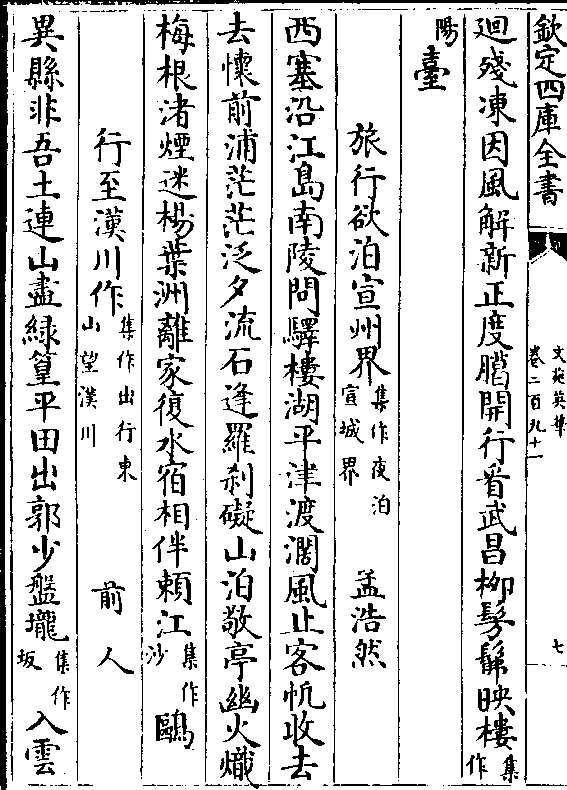 欽定四庫全書
文苑英華
卷二百九十一
七
廻殘凍因風解新正度臈開行看武昌柳髣髴映樓集作
陽臺
旅行欲泊宣州界集作夜泊宣城界 孟浩然
西塞沿江島南陵問驛樓湖平津渡濶風止客帆收去
去懷前浦茫茫泛夕流石逢羅刹礙山泊敬亭幽火熾
梅根渚煙迷楊葉洲離家復水宿相伴頼江集作沙鷗
行至漢川作集作出行東山望漢川 前人
異縣非吾土連山盡緑篁平田出郭少盤壠集作坂入雲